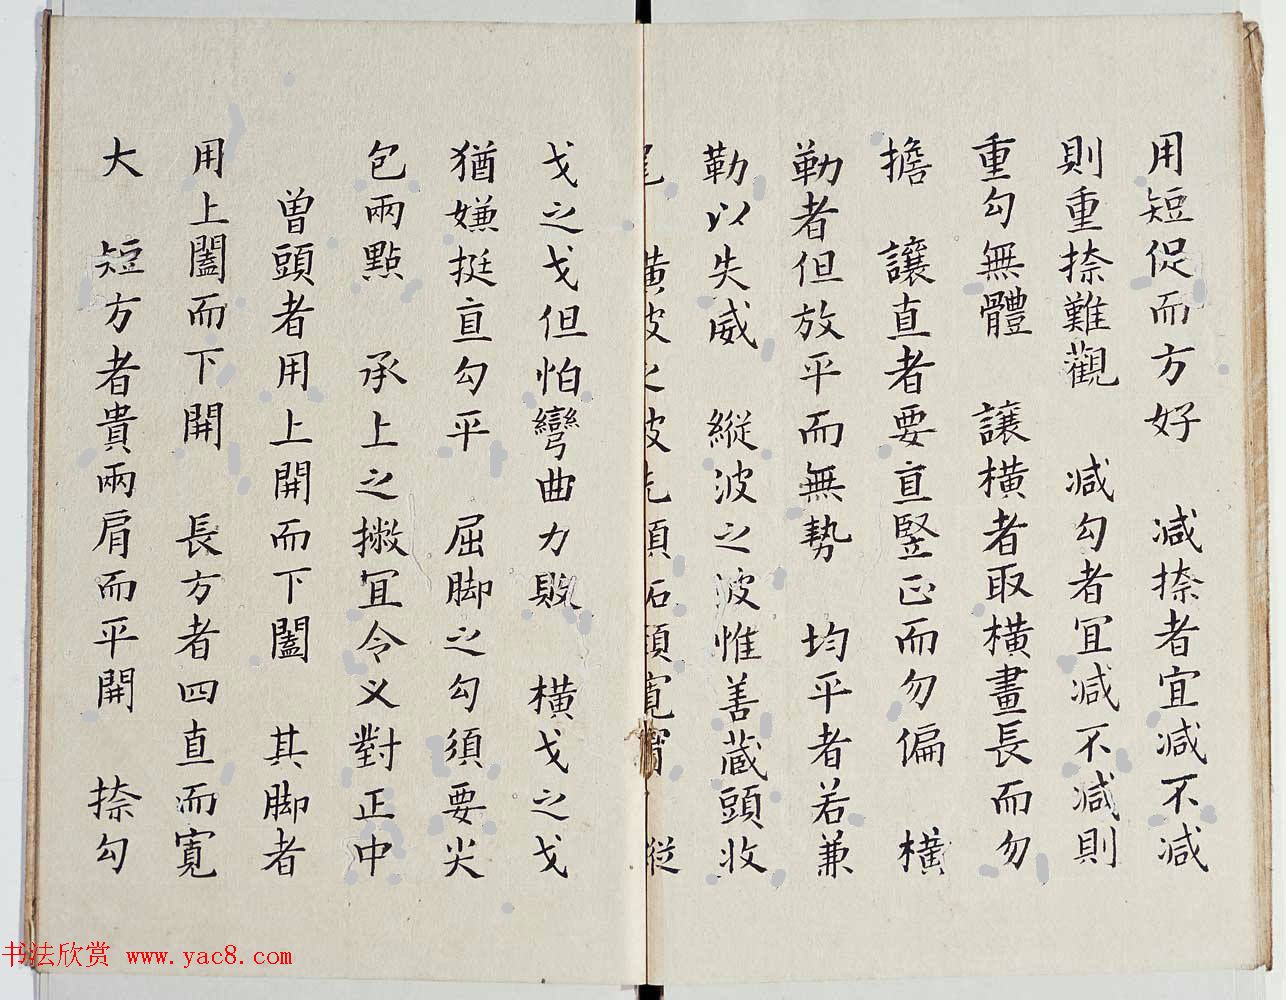 用短促而方好　減捺者宜減不減
則重捺難觀　減勾者宜減不減則
重勾無體　讓橫者取橫畫長而勿
擔　讓直者要直竪正而勿偏　橫
勒者但放平而無勢　均平者若兼
勒以失威　縱波之波惟善蔵頭收
尾　橫波之波先須拓頸寬　縱
戈之戈但怕彎曲力敗　橫戈之戈
猶嫌挺直勾平　屈脚之勾須要尖
包兩點　承上之撇宜令乂對正中
曽頭者用上開而下闔　其脚者
用上闔而下開　長方者四直而寛
大　短方者貴兩肩而平開　捺勾
书法欣赏 www.yac8.com